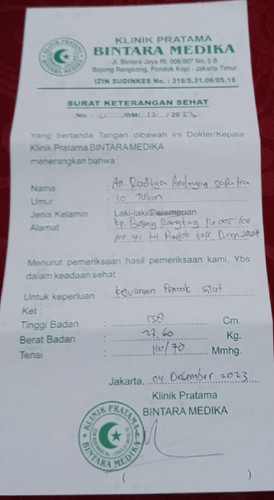 KLINIK PRATAMA
BINTARA MEDIKA
Jl. Bintara Jaya Rt. 006/007 No. 5 B
Bojong Rangkong, Pondok Kopi - Jakarta Timur
IZIN SUDINKES No. : 316/5.31.06/05.18
SURAT KETERANGAN SEHAT
No. : / / 12 / 2023
Yang bertanda Tangan dibawah ini Dokter/Kepala
Klinik Pratama BINTARA MEDIKA
menerangkan bahwa :
Nama : An. Raditya Andryan
Umur : 10 Tahun
Jenis Kelamin : Laki-laki/Perempuan
Alamat : kp. Bojong Rangkong
Menurut pemeriksaan hasil pemeriksaan kami, Ybs
dalam keadaan sehat
Untuk keperluan : silat
Ket :
Tinggi Badan : 138 Cm.
Berat Badan : 27,60 Kg.
Tensi : 110/70 Mmhg.
Jakarta, 04 Desember 2023
Klinik Pratama
BINTARA MEDIKA
KLINIK PRATAMA
BINTARA MEDIKA
( )